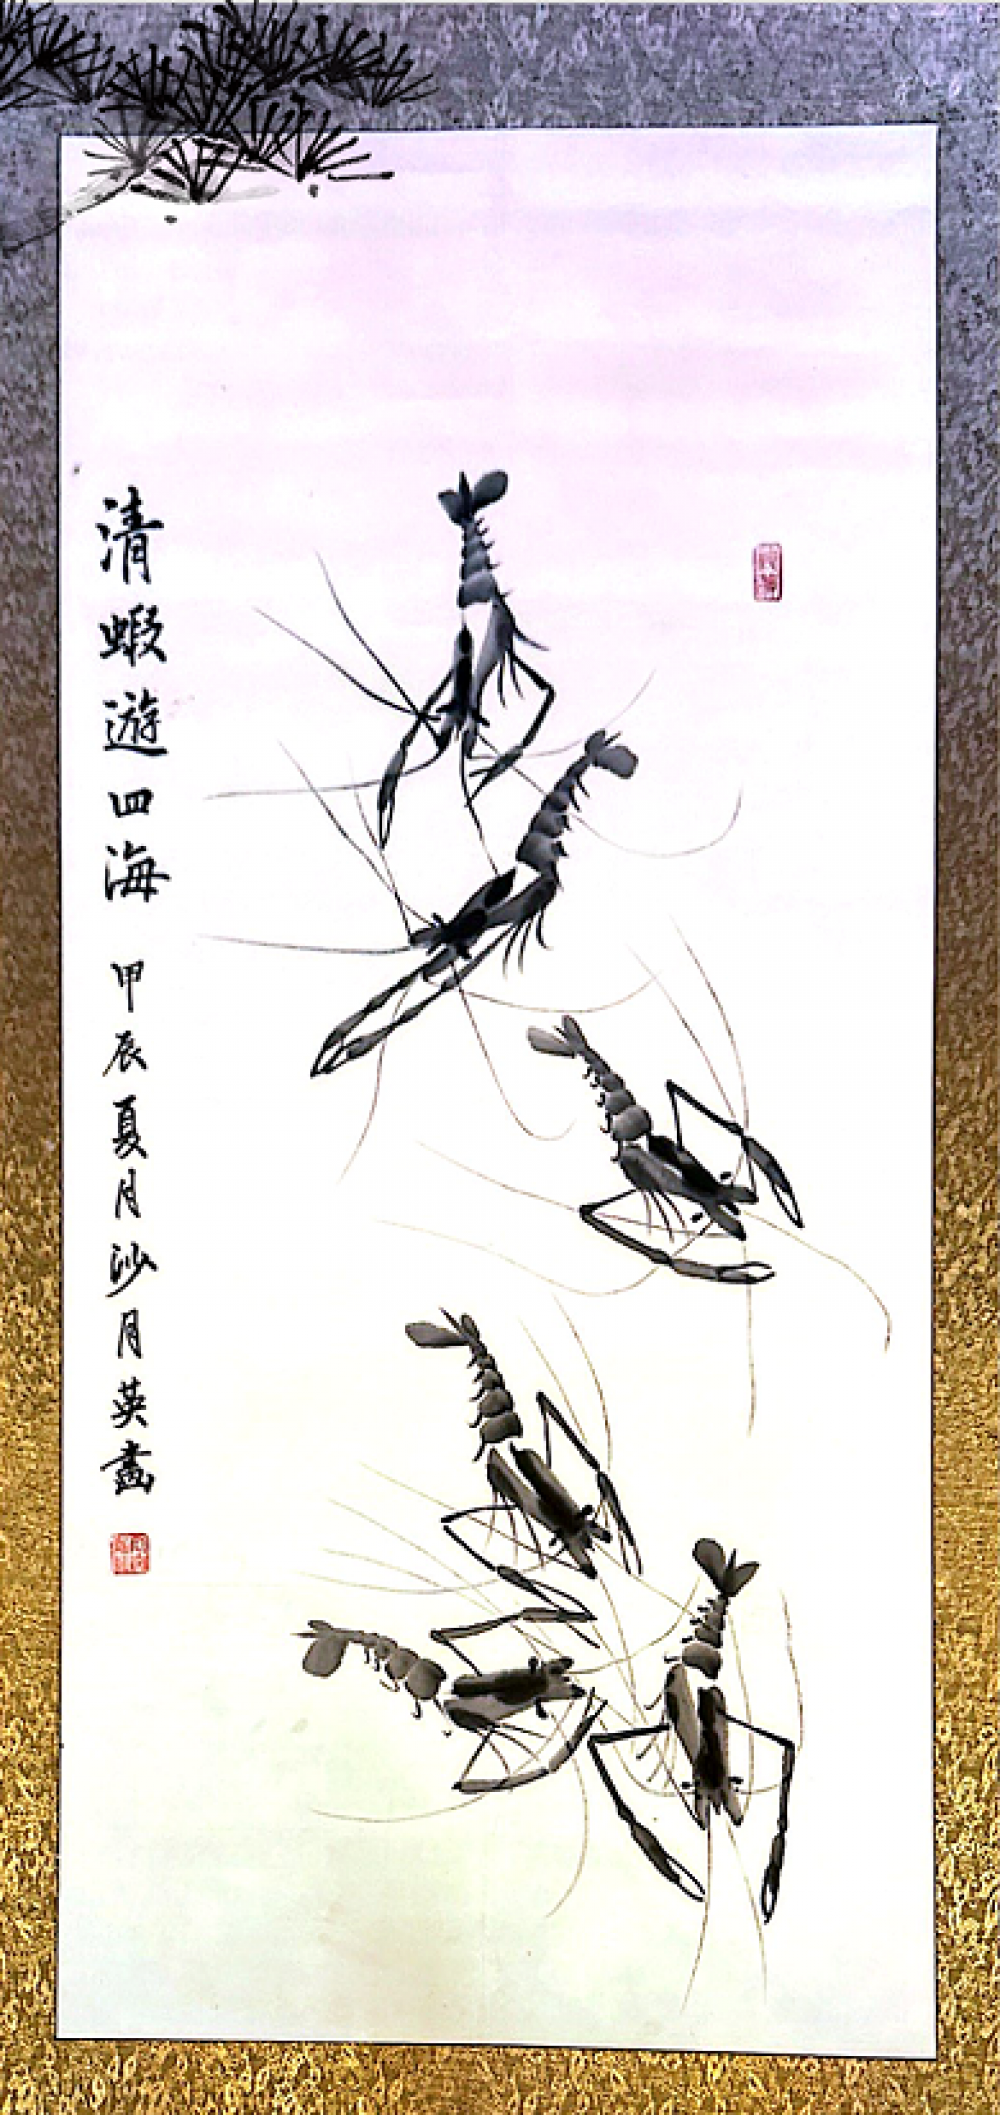 清蝦遊四海 甲辰夏月沙月英畫